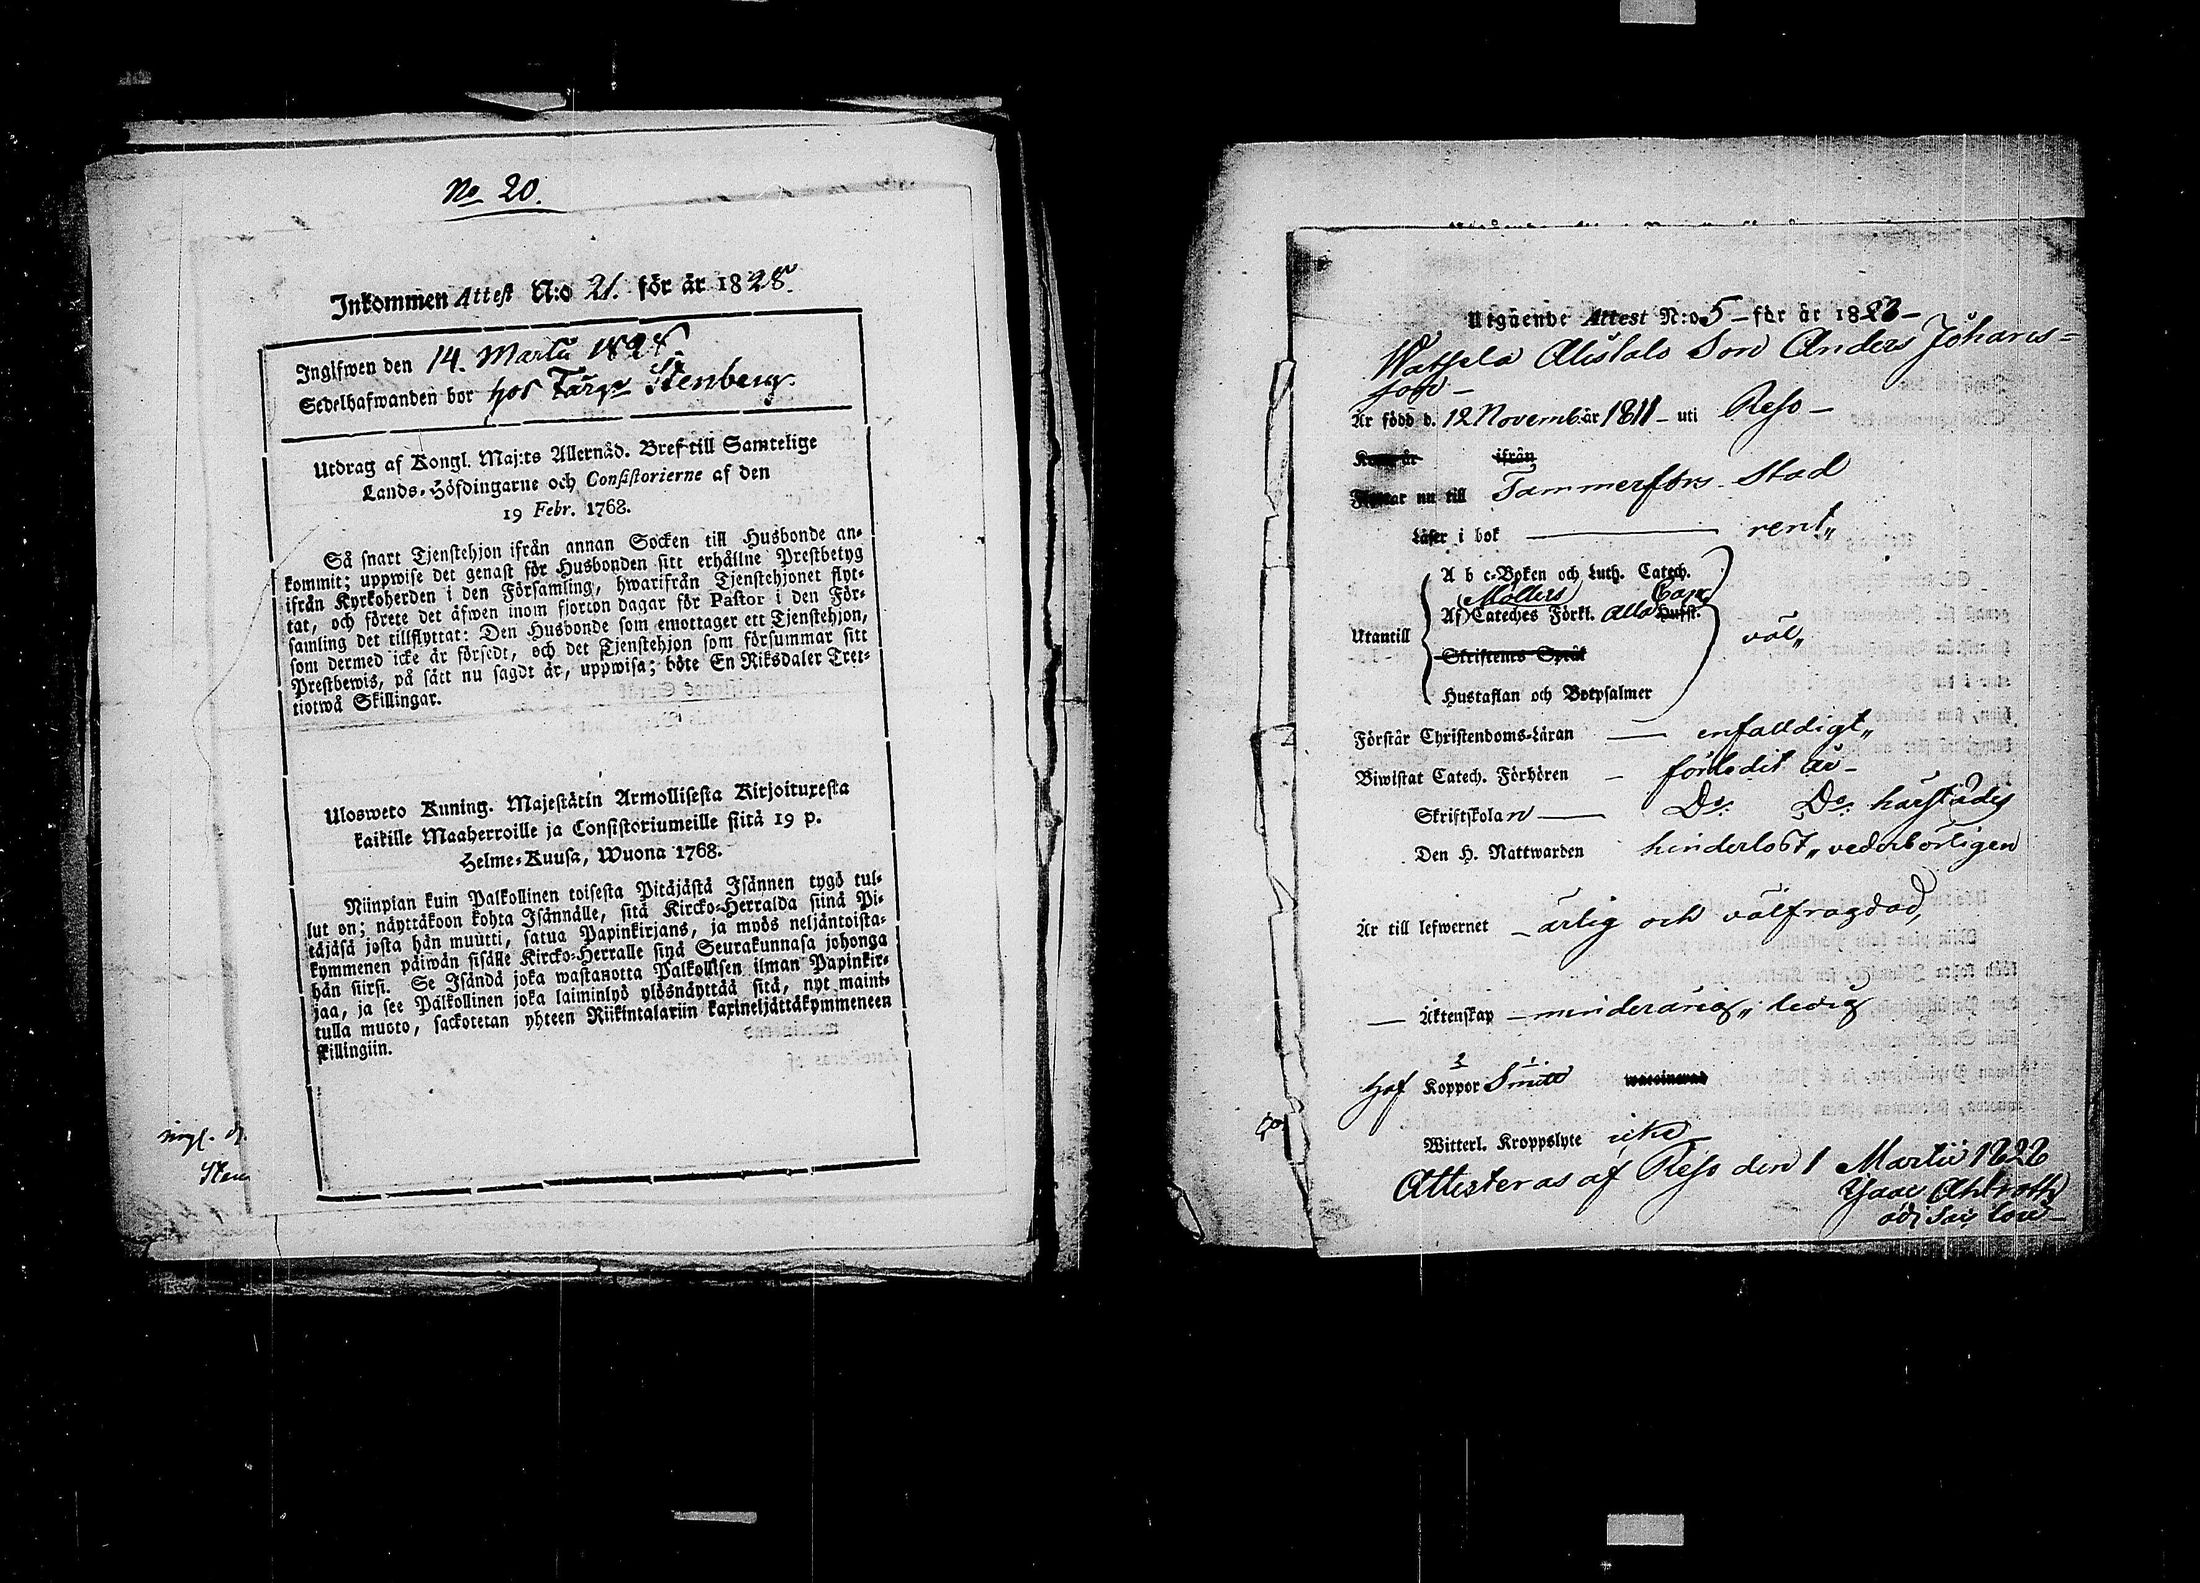 No 20.
Inkommen Attest N:o 21. för år 1828.
Ingifwen den 14. Martii 1828.
Sedelhafwanden bor hos Färg Stenberg.
Utdrag af Kongl. Maj:ts Allernåd. Bref till Samtelige
Lands-Höfdingarne och Consistorierne af den
19 Febr. 1768.
Så snart Tjenstehjon ifrån annan Socken till Husbonde an-
kommit; uppwise det genast för Husbonden sitt erhållne Prestbetyg
ifrån Kyrkoherden i den Församling, hwarifrån Tjenstehjonet flyt-
tat, och förete det äfwen inom fjorton dagar för Pastor i den För-
samling det tillflyttat: Den Husbonde som emottager ett Tjenstehjon,
som dermed icke är försedt, och det Tjenstehjon som försummar sitt
Prestbewis, på sätt nu sagdt är, uppwisa; böte En Riksdaler Tret-
tiotwå Skillingar.
Ulosweto Kuning. Majestätin Armollisesta Kirjoituxesta
kaikille Maaherroille ja Consistoriumeille siitä 19 p.
Helme-Kuusa, Wuona 1768.
Niinpian kuin Palkollinen toisesta Pitäjästä Isännen tygö tul-
lut on; näyttäkoon kohta Isännälle, sitä Kircko-Herralda siinä Pi-
täjäsä josta hän muutti, satua Papinkirjans, ja myös neljäntoista-
kymmenen päiwän sisälle Kircko-Herralle sinä Seurakunnasa johonga
hän siirsi. Se Isändä joka wastanotta Palkollisen ilman Papinkir-
jaa, ja see Palkollinen joka laiminlyö ylösnäyttää sitä, nyt maini-
tulla muoto, sackotetan yhteen Riikintalariin kaxineljättäkymmeneen
skillingiin.
Utgående Attest N:o 5 – för år 1828 –
Alistalo Son Anders Johans-
son –
Är född d. 12 Novemb. år 1811 – uti Reso –
Kom år ifrån
Flyttar nu till Tammerfors Stad
Läser i bok — rent„
A b c-Boken och Luth. Catech.
(Möllers) Cap.
Utantill Af Cateches Förkl. alla Hufst. väl„
Skriftenes Språk
Hustaflan och Botpsalmer
Förstår Christendoms-Läran — enfalldigt„
Biwistat Catech. Förhören – förledit år –
Skriftskolan — Do. Do. härstädes
Den H. Nattwarden hinderlöst„ vederbörligen
Är till lefwernet – ärlig och välfrägdad,
— Äktenskap – minderårig„ ledig
Haf Koppor 2 Smitt 1 waccinerad
Witterl. Kroppslyte icke
Attisteras af Reso den 1 Martii 1828
Isaac Ahlroth